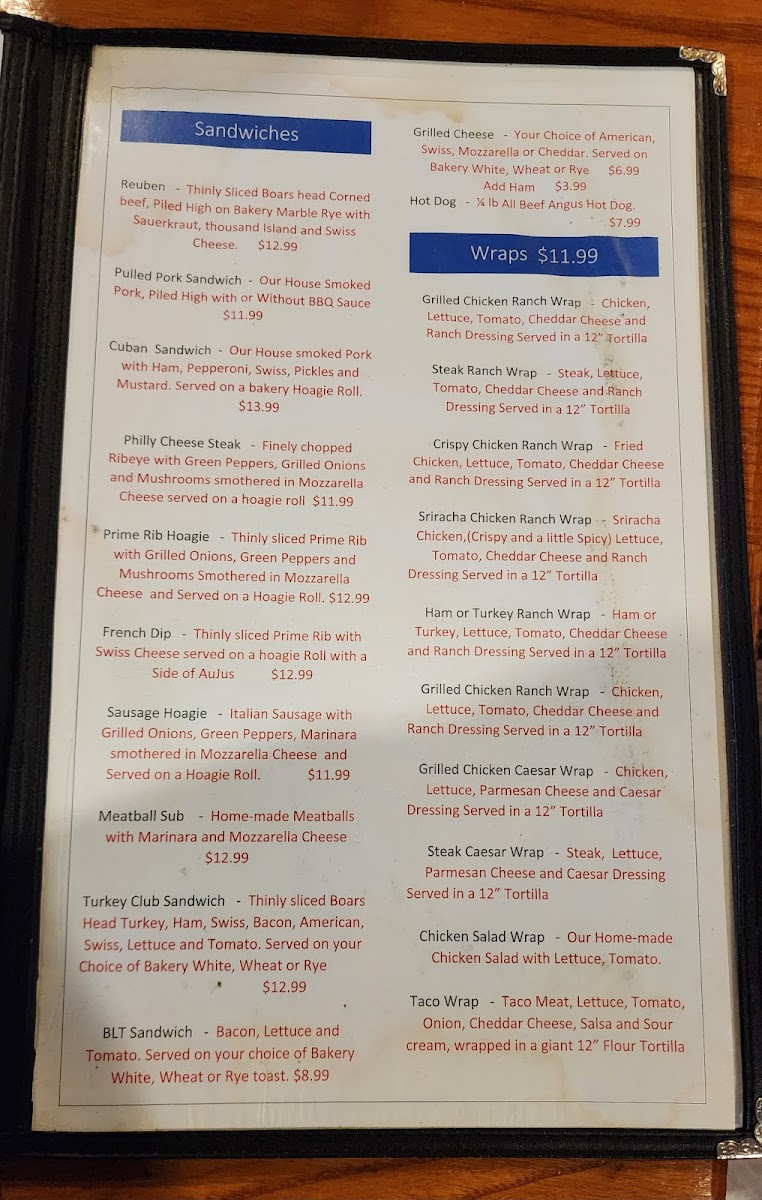 Sandwiches
Reuben - Thinly Sliced Boars head Corned
beef, Piled High on Bakery Marble Rye with
Sauerkraut, thousand Island and Swiss
Cheese. $12.99
Pulled Pork Sandwich - Our House Smoked
Pork, Piled High with or Without BBQ Sauce
$11.99
Cuban Sandwich - Our House smoked Pork
with Ham, Pepperoni, Swiss, Pickles and
Mustard. Served on a bakery Hoagie Roll.
$13.99
Philly Cheese Steak - Finely chopped
Ribeye with Green Peppers, Grilled Onions
and Mushrooms smothered in Mozzarella
Cheese served on a hoagie roll $11.99
Prime Rib Hoagie - Thinly sliced Prime Rib
with Grilled Onions, Green Peppers and
Mushrooms Smothered in Mozzarella
Cheese and Served on a Hoagie Roll. $12.99
French Dip - Thinly sliced Prime Rib with
Swiss Cheese served on a hoagie Roll with a
Side of AuJus $12.99
Sausage Hoagie - Italian Sausage with
Grilled Onions, Green Peppers, Marinara
smothered in Mozzarella Cheese and
Served on a Hoagie Roll. $11.99
Meatball Sub - Home-made Meatballs
with Marinara and Mozzarella Cheese
$12.99
Turkey Club Sandwich - Thinly sliced Boars
Head Turkey, Ham, Swiss, Bacon, American,
Swiss, Lettuce and Tomato. Served on your
Choice of Bakery White, Wheat or Rye
$12.99
BLT Sandwich - Bacon, Lettuce and
Tomato. Served on your choice of Bakery
White, Wheat or Rye toast. $8.99
Grilled Cheese - Your Choice of American,
Swiss, Mozzarella or Cheddar. Served on
Bakery White, Wheat or Rye $6.99
Add Ham $3.99
Hot Dog - ¼ lb All Beef Angus Hot Dog.
$7.99
Wraps $11.99
Grilled Chicken Ranch Wrap - Chicken,
Lettuce, Tomato, Cheddar Cheese and
Ranch Dressing Served in a 12" Tortilla
Steak Ranch Wrap - Steak, Lettuce,
Tomato, Cheddar Cheese and Ranch
Dressing Served in a 12" Tortilla
Crispy Chicken Ranch Wrap - Fried
Chicken, Lettuce, Tomato, Cheddar Cheese
and Ranch Dressing Served in a 12" Tortilla
Sriracha Chicken Ranch Wrap - Sriracha
Chicken,(Crispy and a little Spicy) Lettuce,
Tomato, Cheddar Cheese and Ranch
Dressing Served in a 12" Tortilla
Ham or Turkey Ranch Wrap - Ham or
Turkey, Lettuce, Tomato, Cheddar Cheese
and Ranch Dressing Served in a 12" Tortilla
Grilled Chicken Ranch Wrap - Chicken,
Lettuce, Tomato, Cheddar Cheese and
Ranch Dressing Served in a 12" Tortilla
Grilled Chicken Caesar Wrap - Chicken,
Lettuce, Parmesan Cheese and Caesar
Dressing Served in a 12" Tortilla
Steak Caesar Wrap - Steak, Lettuce,
Parmesan Cheese and Caesar Dressing
Served in a 12" Tortilla
Chicken Salad Wrap - Our Home-made
Chicken Salad with Lettuce, Tomato.
Taco Wrap - Taco Meat, Lettuce, Tomato,
Onion, Cheddar Cheese, Salsa and Sour
cream, wrapped in a giant 12" Flour Tortilla